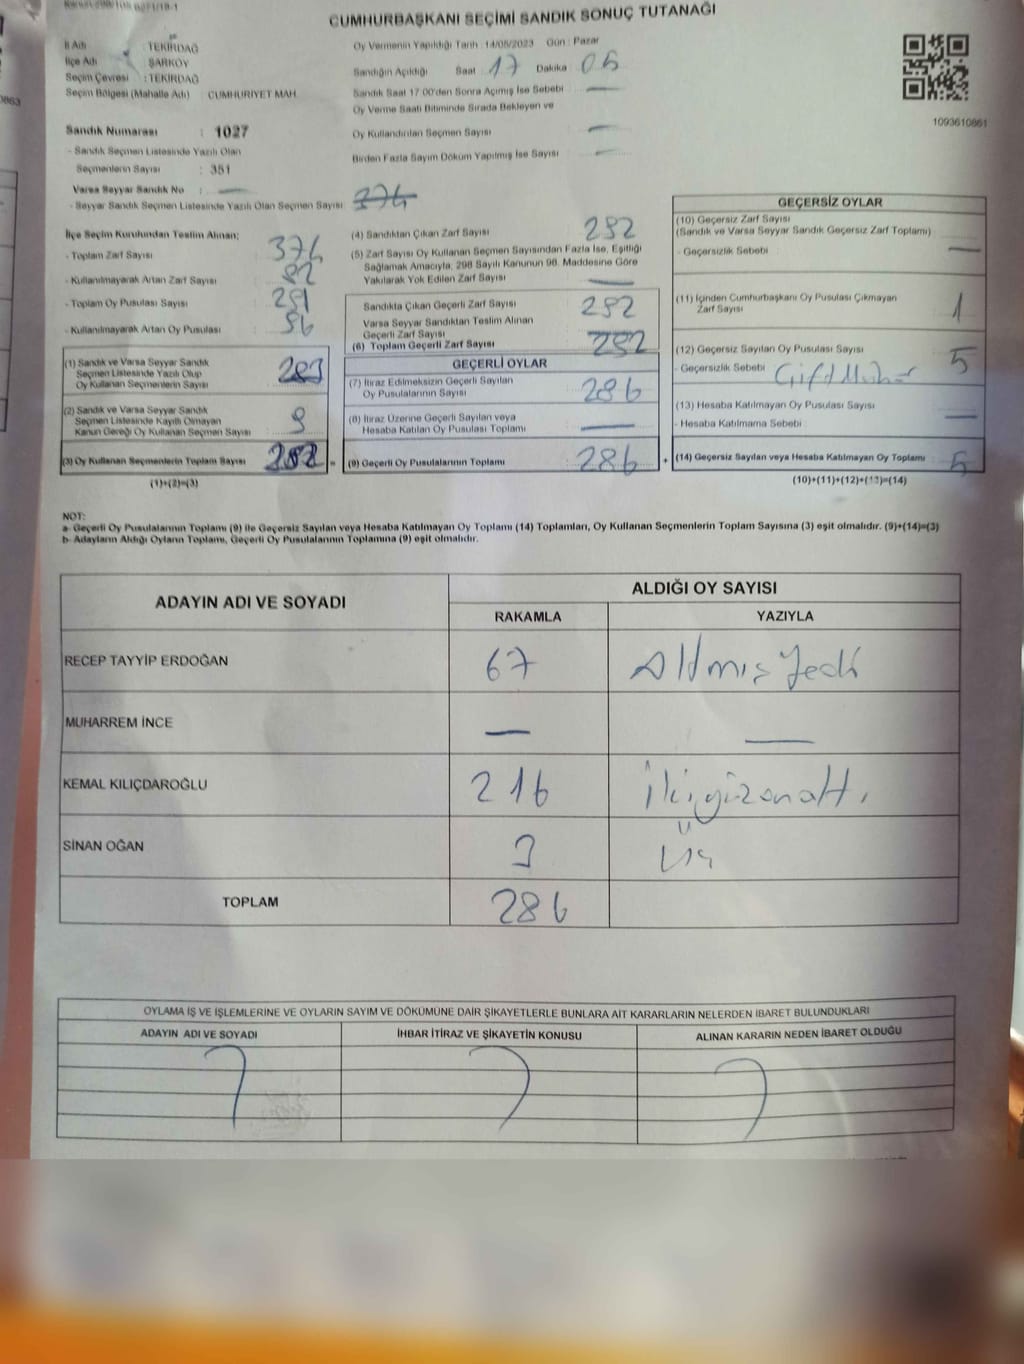 CUMHURBAŞKANI SEÇİMİ SANDIK SONUÇ TUTANAĞI
İl Adı : TEKİRDAĞ
İlçe Adı : ŞARKÖY
Seçim Çevresi : TEKİRDAĞ
Seçim Bölgesi (Mahalle Adı) CUMHURİYET MAH.
Sandık Numarası : 1027
- Sandık Seçmen Listesinde Yazılı Olan
Seçmenlerin Sayısı : 351
Varsa Seyyar Sandık No : —
- Seyyar Sandık Seçmen Listesinde Yazılı Olan Seçmen Sayısı:
Oy Vermenin Yapıldığı Tarih :14/05/2023 Gün : Pazar
Sandığın Açıldığı Saat 17 Dakika 05
Sandık Saat 17.00'den Sonra Açılmış İse Sebebi —
Oy Verme Saati Bitiminde Sırada Bekleyen ve
Oy Kullandırılan Seçmen Sayısı —
Birden Fazla Sayım Döküm Yapılmış İse Sayısı —
1093610861
İlçe Seçim Kurulundan Teslim Alınan;
- Toplam Zarf Sayısı :
- Kullanılmayarak Artan Zarf Sayısı :
- Toplam Oy Pusulası Sayısı :
- Kullanılmayarak Artan Oy Pusulası :
(1) Sandık ve Varsa Seyyar Sandık
Seçmen Listesinde Yazılı Olup
Oy Kullanan Seçmenlerin Sayısı :
(2) Sandık ve Varsa Seyyar Sandık
Seçmen Listesinde Kayıtlı Olmayan
Kanun Gereği Oy Kullanan Seçmen Sayısı : 9
(3) Oy Kullanan Seçmenlerin Toplam Sayısı :
(1)+(2)=(3)
(4) Sandıktan Çıkan Zarf Sayısı : 292
(5) Zarf Sayısı Oy Kullanan Seçmen Sayısından Fazla İse, Eşitliği
Sağlamak Amacıyla, 298 Sayılı Kanunun 98. Maddesine Göre
Yakılarak Yok Edilen Zarf Sayısı : —
Sandıkta Çıkan Geçerli Zarf Sayısı : 292
Varsa Seyyar Sandıktan Teslim Alınan
Geçerli Zarf Sayısı
(6) Toplam Geçerli Zarf Sayısı : 292
GEÇERLİ OYLAR
(7) İtiraz Edilmeksizin Geçerli Sayılan
Oy Pusulasının Sayısı : 286
(8) İtiraz Üzerine Geçerli Sayılan veya
Hesaba Katılan Oy Pusulası Toplamı : —
(9) Geçerli Oy Pusulalarının Toplamı : 286
GEÇERSİZ OYLAR
(10) Geçersiz Zarf Sayısı
(Sandık ve Varsa Seyyar Sandık Geçersiz Zarf Toplamı)
- Geçersizlik Sebebi —
(11) İçinden Cumhurbaşkanı Oy Pusulası Çıkmayan
Zarf Sayısı 1
(12) Geçersiz Sayılan Oy Pusulası Sayısı 5
- Geçersizlik Sebebi Çift Mühür
(13) Hesaba Katılmayan Oy Pusulası Sayısı —
- Hesaba Katılmama Sebebi
(14) Geçersiz Sayılan veya Hesaba Katılmayan Oy Toplamı :
(10)+(11)+(12)+(13)=(14)
NOT:
a- Geçerli Oy Pusulalarının Toplamı (9) ile Geçersiz Sayılan veya Hesaba Katılmayan Oy Toplamı (14) Toplamları, Oy Kullanan Seçmenlerin Toplam Sayısına (3) eşit olmalıdır. (9)+(14)=(3)
b- Adayların Aldığı Oyların Toplamı, Geçerli Oy Pusulalarının Toplamına (9) eşit olmalıdır.
ADAYIN ADI VE SOYADI ALDIĞI OY SAYISI
RAKAMLA YAZIYLA
RECEP TAYYİP ERDOĞAN 67 Altmış Yedi
MUHARREM İNCE — —
KEMAL KILIÇDAROĞLU 216 İkiyüzonaltı
SİNAN OĞAN 3 Üç
TOPLAM 286
OYLAMA İŞ VE İŞLEMLERİNE VE OYLARIN SAYIM VE DÖKÜMÜNE DAİR ŞİKAYETLERLE BUNLARA AİT KARARLARIN NELERDEN İBARET BULUNDUKLARI
ADAYIN ADI VE SOYADI İHBAR İTİRAZ VE ŞİKAYETİN KONUSU ALINAN KARARIN NEDEN İBARET OLDUĞU